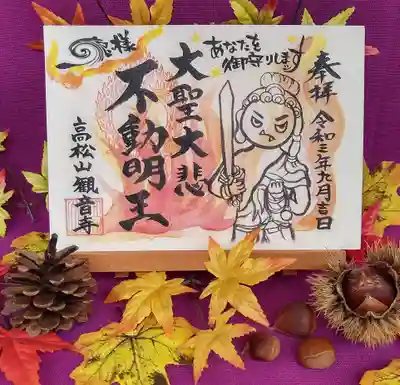 奉拝
令和三年九月吉日
あなたを
御守りします
大聖大悲
不動明王
様
高松山観音寺